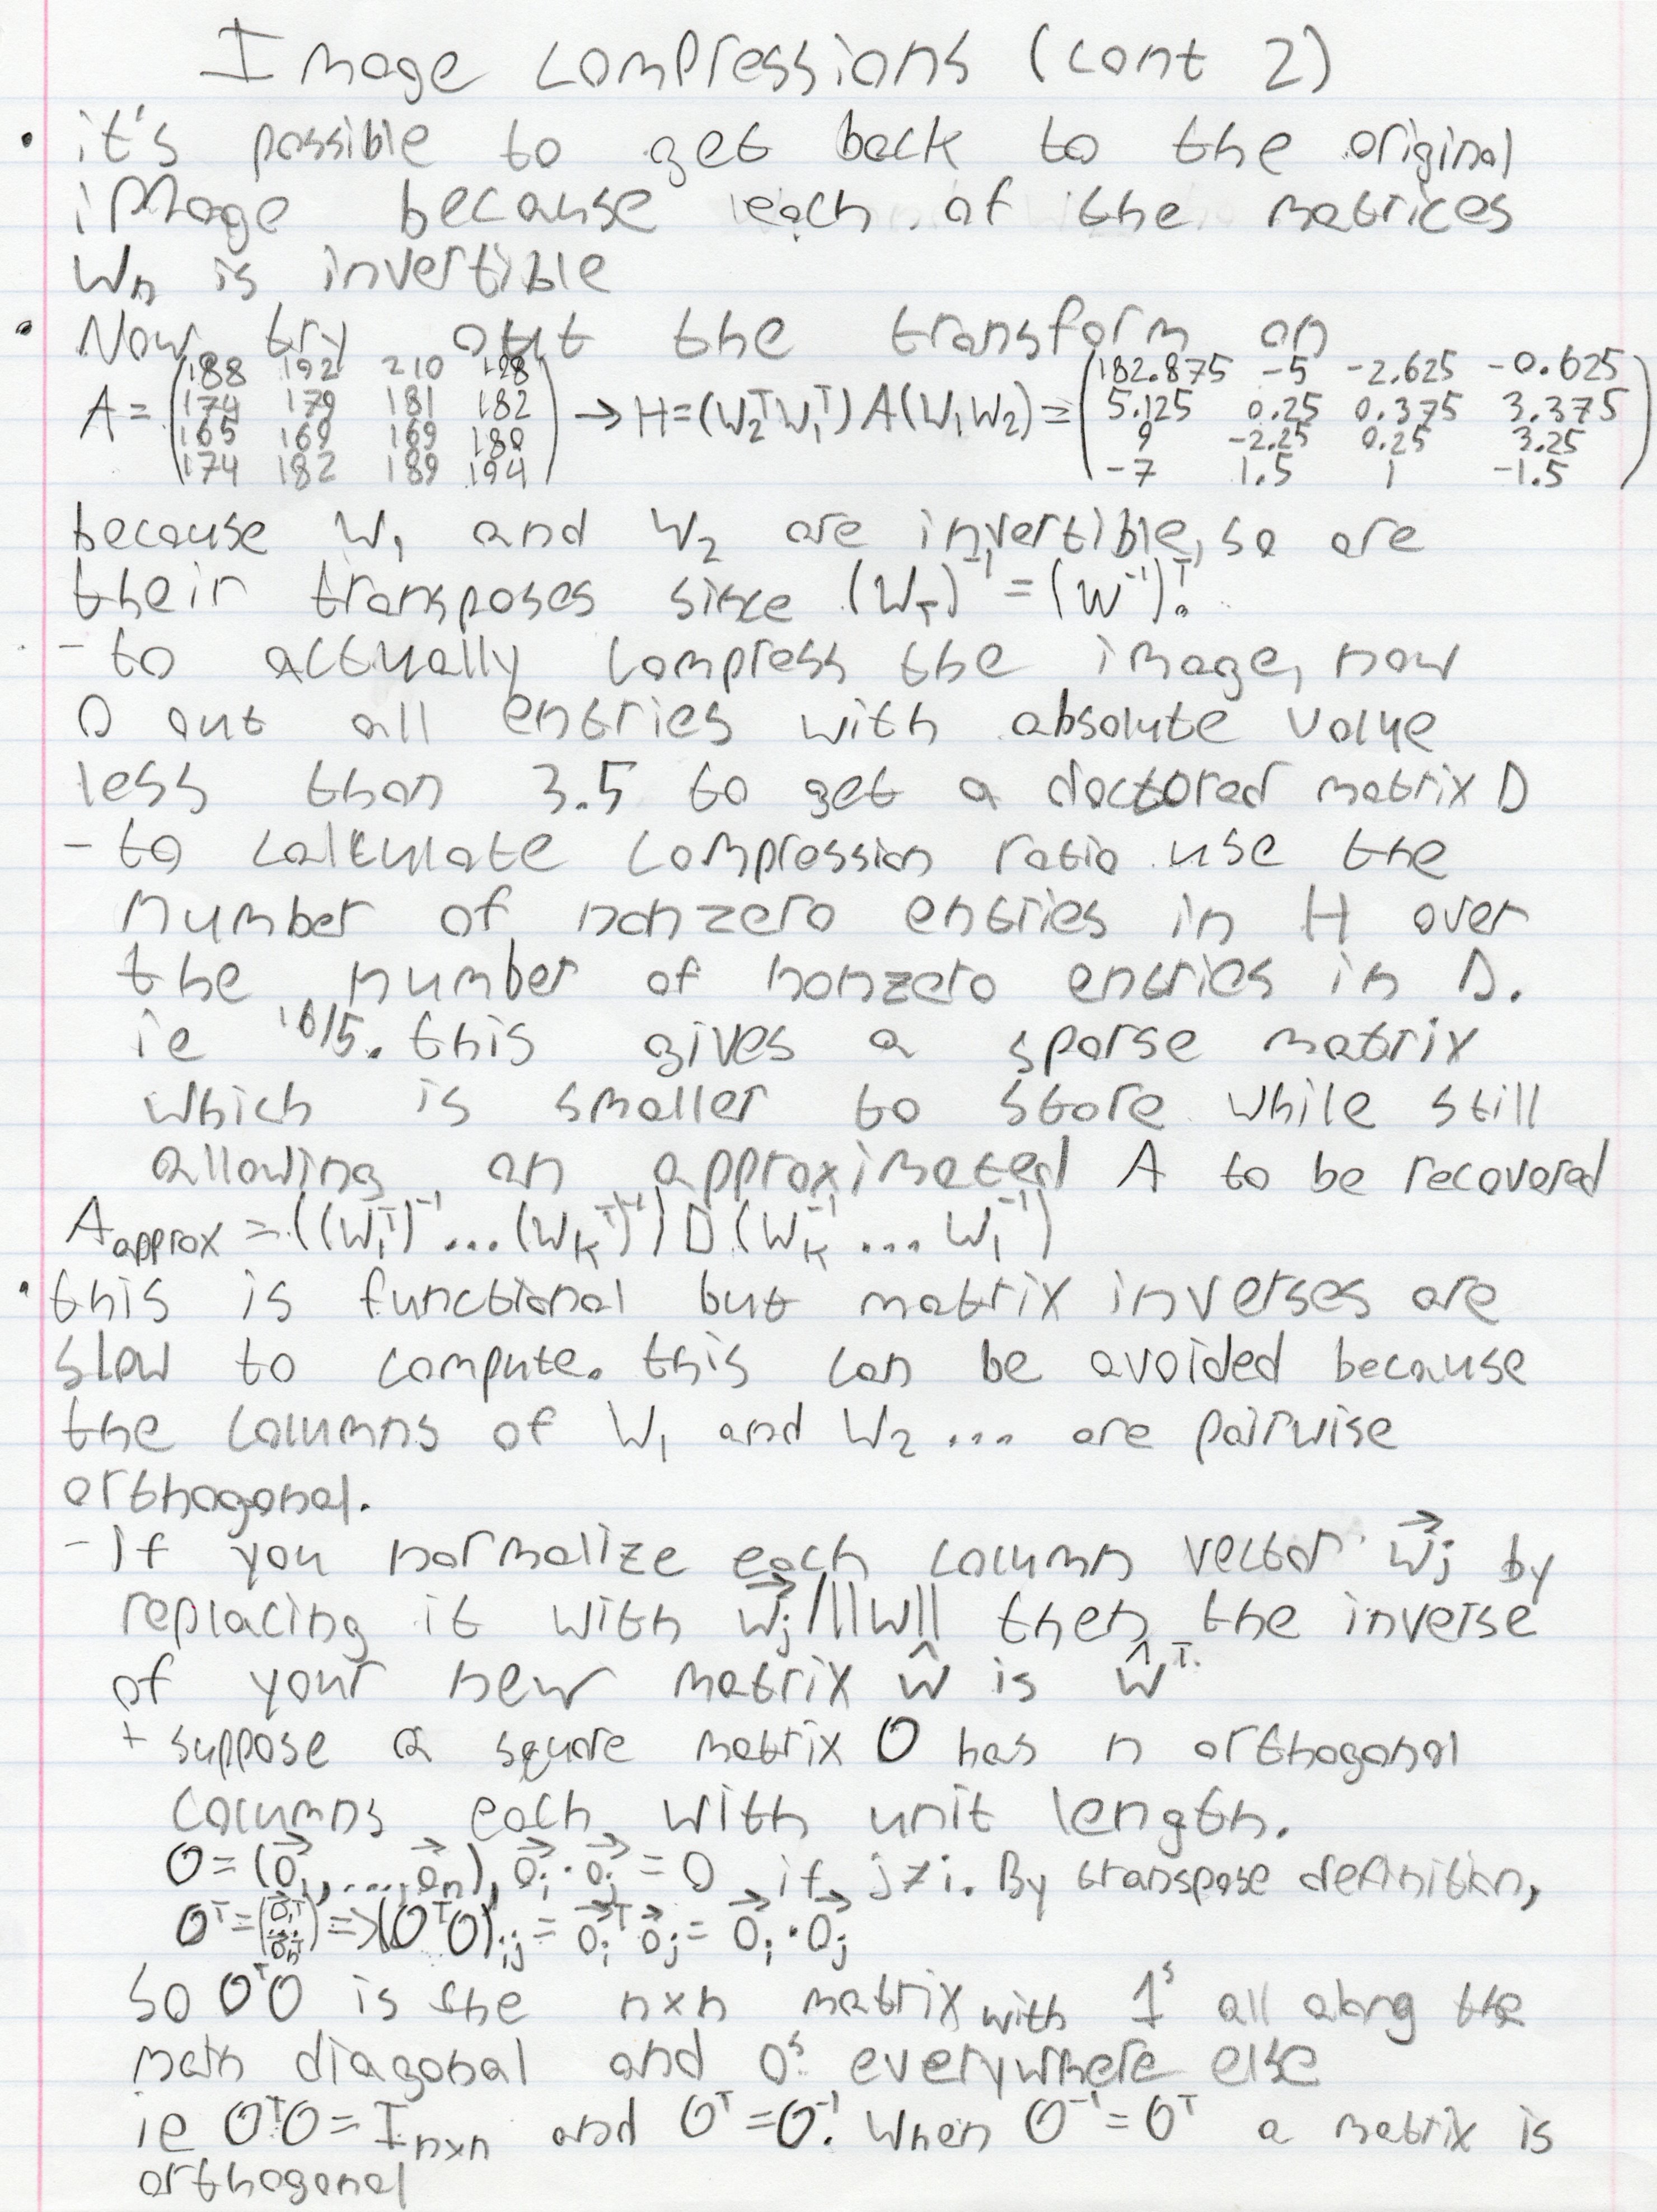 Image Compressions (cont 2)
• it's possible to get back to the original
image because each of the matrices
Wn is invertible
• Now try out the transform on
A = (188 192 210 198; 174 179 181 182; 165 169 169 180; 174 182 189 194) → H = (W₂ᵀW₁ᵀ) A (W₁W₂) = (182.875 -5 -2.625 -0.625; 5.125 0.25 0.375 3.375; 9 -2.25 0.25 3.25; -7 1.5 1 -1.5)
because W₁ and W₂ are invertible, so are
their transposes since (W_T)⁻¹ = (W⁻¹)ᵀ.
- to actually compress the image, now
0 out all entries with absolute value
less than 3.5 to get a doctored matrix D
- to calculate compression ratio use the
number of nonzero entries in H over
the number of nonzero entries in D.
ie 16/5. this gives a sparse matrix
which is smaller to store while still
allowing an approximated A to be recovered
A_approx = ((W₁ᵀ)⁻¹ ... (W_Kᵀ)⁻¹) D (W_K⁻¹ ... W₁⁻¹)
• this is functional but matrix inverses are
slow to compute. this can be avoided because
the columns of W₁ and W₂ ... are pairwise
orthogonal.
- If you normalize each column vector w⃗j by
replacing it with w⃗j/||w|| then the inverse
of your new matrix ŵ is ŵᵀ.
+ suppose a square matrix O has n orthogonal
columns each with unit length.
O = (o⃗₁, ..., o⃗n), o⃗i · o⃗j = 0 if j ≠ i. By transpose definition,
Oᵀ = (o⃗₁ᵀ; ⋮; o⃗nᵀ) => (OᵀO)ij = o⃗iᵀ o⃗j = o⃗i · o⃗j
So OᵀO is the n×n matrix with 1ˢ all along the
main diagonal and 0ˢ everywhere else
ie OᵀO = I_n×n and Oᵀ = O⁻¹. When O⁻¹ = Oᵀ a matrix is
orthogonal